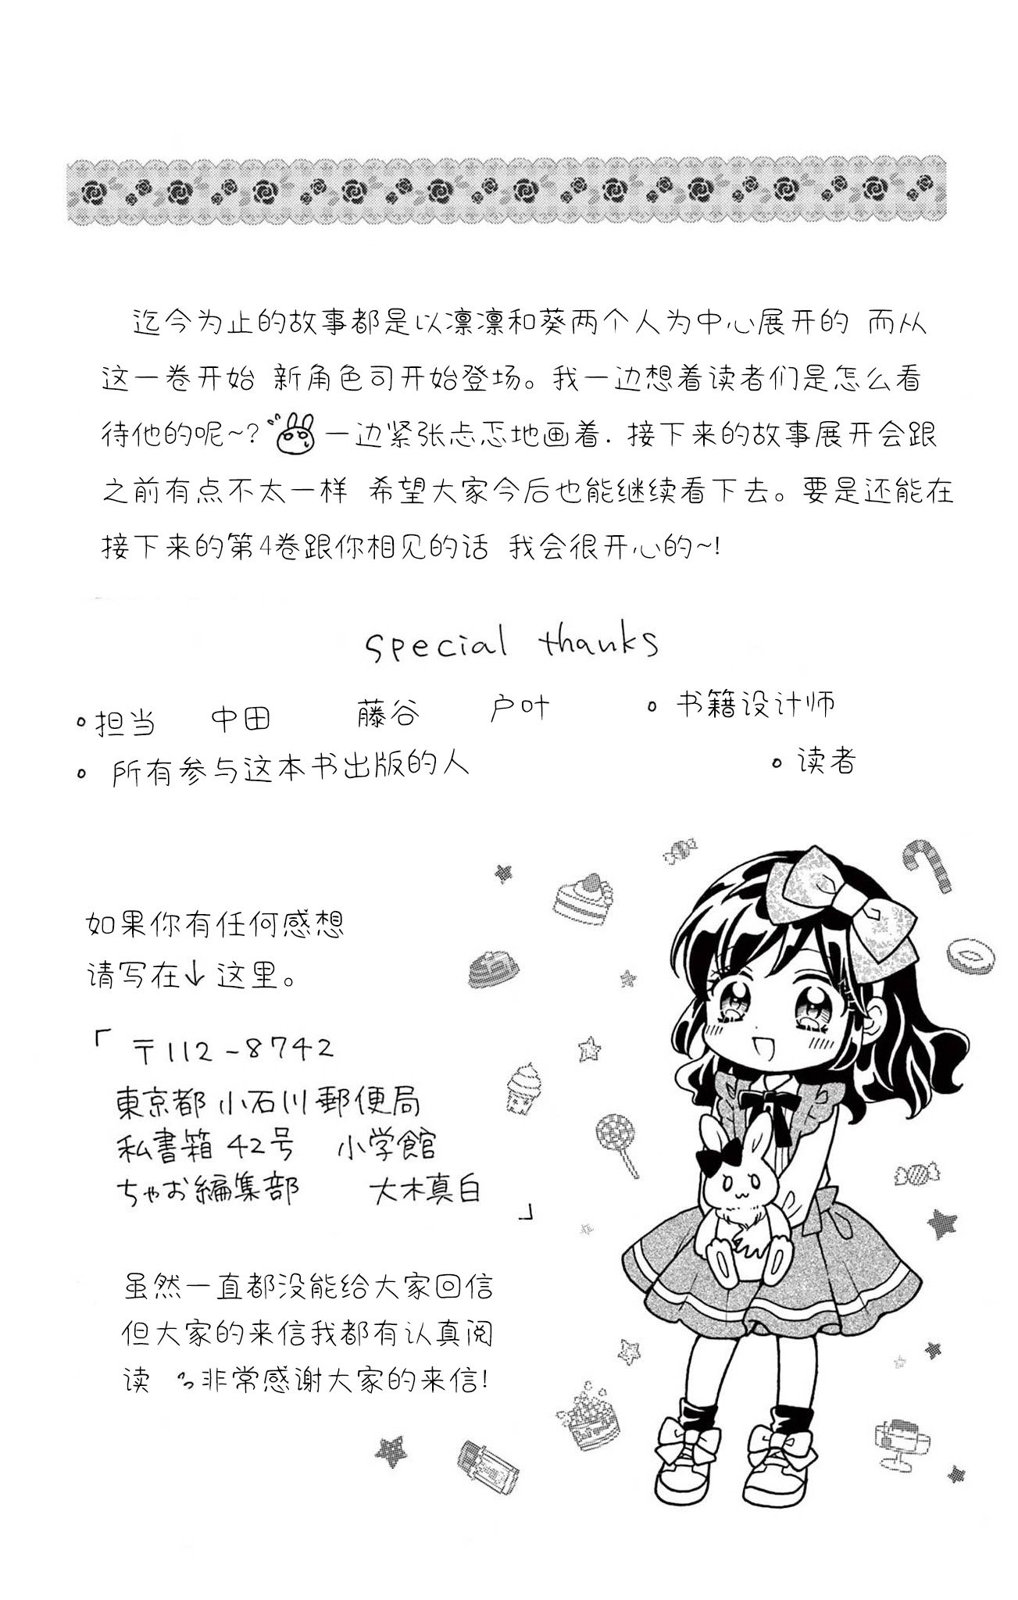 迄今为止的故事都是以凛凛和葵两个人为中心展开的 而从
这一卷开始 新角色司开始登场。我一边想着读者们是怎么看
待他的呢~? 一边紧张忐忑地画着. 接下来的故事展开会跟
之前有点不太一样 希望大家今后也能继续看下去。要是还能在
接下来的第4卷跟你相见的话 我会很开心的~!
special thanks
。担当 中田 藤谷 户叶 。书籍设计师
。所有参与这本书出版的人 。读者
如果你有任何感想
请写在↓这里。
「〒112-8742
東京都小石川郵便局
私書箱42号 小学館
ちゃお編集部 大木真白」
虽然一直都没能给大家回信
但大家的来信我都有认真阅
读 非常感谢大家的来信!